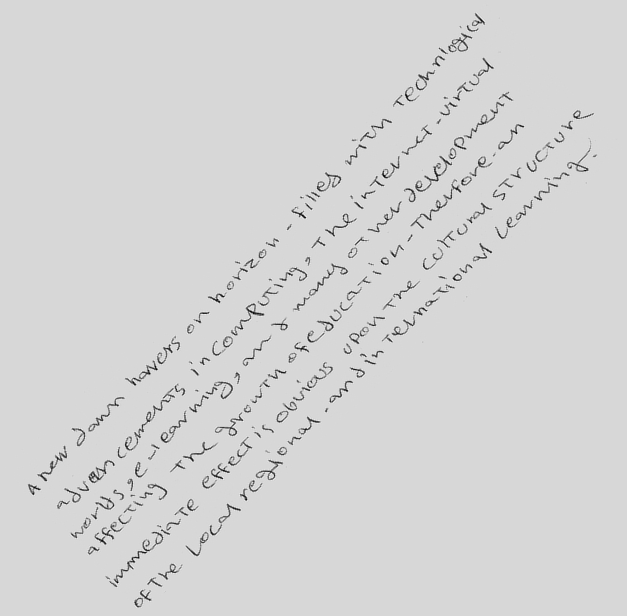 A new dawn hovers on horizon - filled with technlogical
advancements in computing, the internet - virtual
worlds, e-learning, and many other development
affecting the growth of education - Therfore - an
immediate effect is obvious upon the cultural structure
of the Local regional - and international Learning.